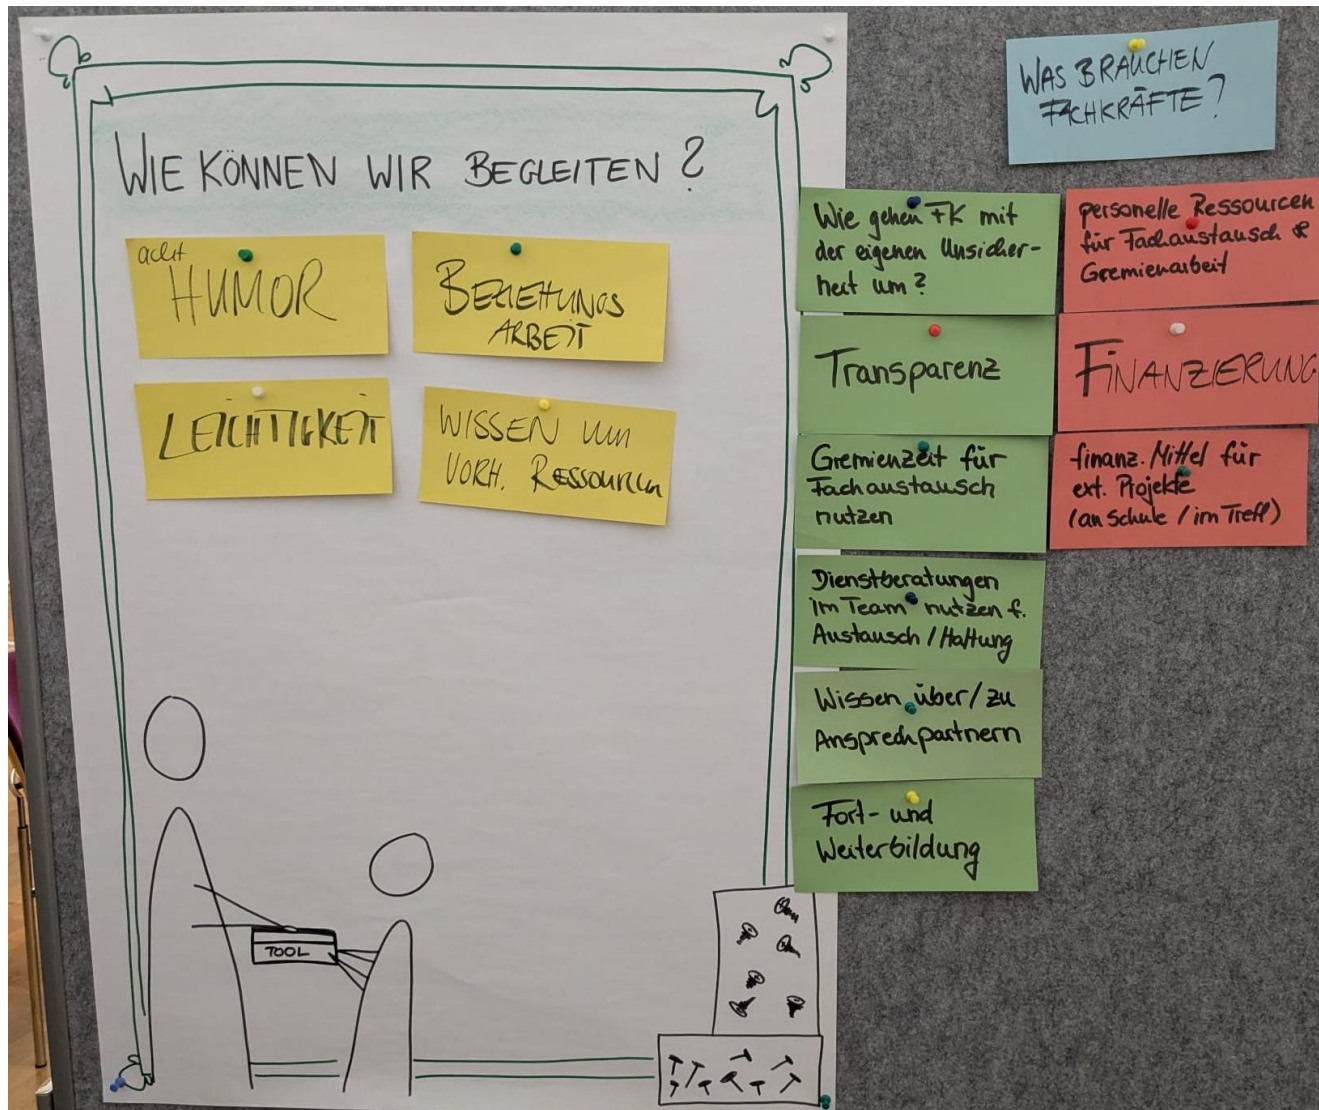 WIE KÖNNEN WIR BEGLEITEN?
acht
HUMOR
BEZIEHUNGS
ARBEIT
LEICHTIGKEIT
WISSEN um
VORH. RESSOURCEN
TOOL
WAS BRAUCHEN
FACHKRÄFTE?
Wie gehen FK mit
der eigenen Unsicher-
heit um?
Transparenz
Gremienzeit für
Fachaustausch
nutzen
Dienstberatungen
im Team nutzen f.
Austausch / Haltung
Wissen über / zu
Ansprechpartnern
Fort- und
Weiterbildung
personelle Ressourcen
für Fachaustausch &
Gremienarbeit
FINANZIERUNG
finanz. Mittel für
ext. Projekte
(an Schule / im Treff)